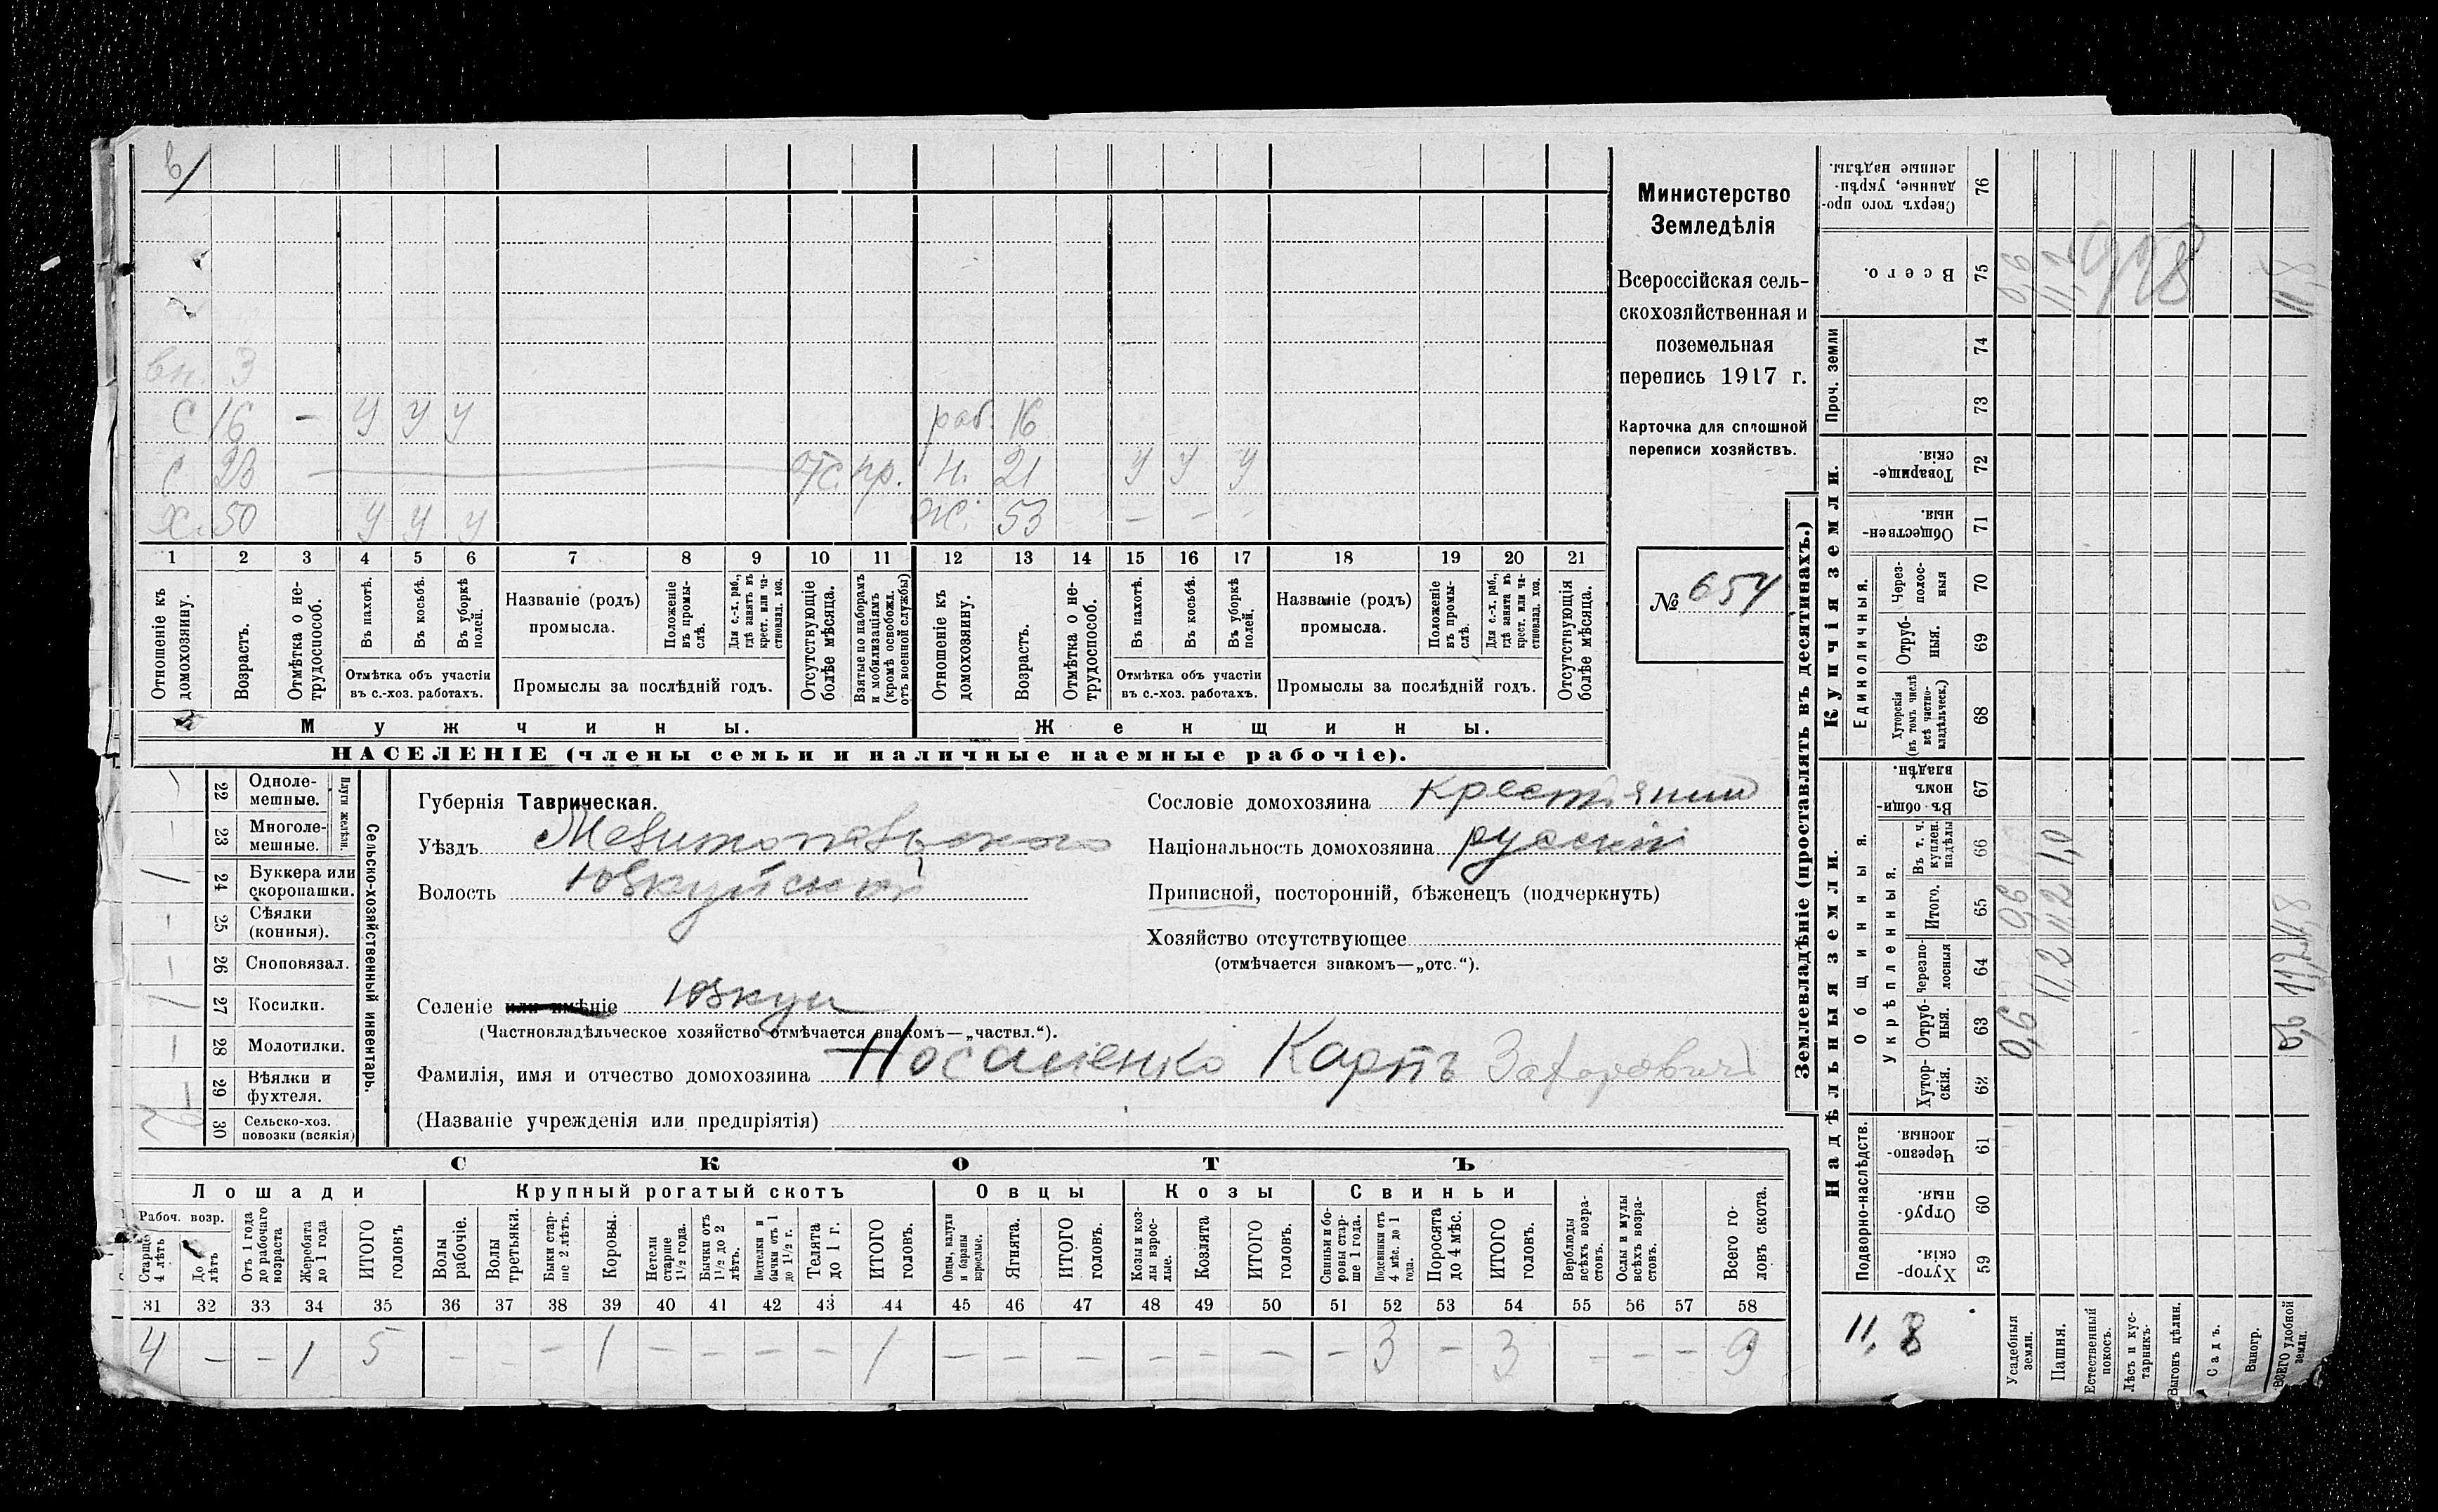 в/
вн. 3
С 16 — У У У раб. 16
С 23 отс. пр. Н. 21 У У У
Х. 50 У У У Ж. 53 — — —
1 2 3 4 5 6 7 8 9 10 11 12 13 14 15 16 17 18 19 20 21
Отношеніе къ домохозяину.
Возрастъ.
Отмѣтка о не-трудоспособ.
Въ пахотѣ.
Въ косьбѣ.
Въ уборкѣ полей.
Отмѣтка объ участіи въ с.-хоз. работахъ.
Названіе (родъ) промысла.
Положеніе въ промы-слѣ.
Для с.-х. раб., гдѣ занятъ въ крест. или ча-стновлад. хоз.
Промыслы за послѣдній годъ.
Отсутствующіе болѣе мѣсяца.
Взятые по наборамъ и мобилизаціямъ (кромѣ освобожд. отъ военной службы)
Отношеніе къ домохозяину.
Возрастъ.
Отмѣтка о не-трудоспособ.
Въ пахотѣ.
Въ косьбѣ.
Въ уборкѣ полей.
Отмѣтка объ участіи въ с.-хоз. работахъ.
Названіе (родъ) промысла.
Положеніе въ промы-слѣ.
Для с.-х. раб., гдѣ занята въ крест. или ча-стновлад. хоз.
Промыслы за послѣдній годъ.
Отсутствующія болѣе мѣсяца.
Мужчины. Женщины.
НАСЕЛЕНІЕ (члены семьи и наличные наемные рабочіе).
Министерство
Земледѣлія
Всероссійская сель-
скохозяйственная и
поземельная
перепись 1917 г.
Карточка для сплошной
переписи хозяйствъ.
№ 654
Сельско-хозяйственный инвентарь.
Плуги желѣзн.
22 Одноле-мешные.
23 Многоле-мешные.
24 Буккера или скоропашки.
25 Сѣялки (конныя).
26 Сноповязал.
27 Косилки.
28 Молотилки.
29 Вѣялки и фухтеля.
30 Сельско-хоз. повозки (всякія)
Губернія Таврическая.
Уѣздъ Мелитопольского
Волость Юзкуйской
Селеніе или имѣніе Юзкуи
(Частновладѣльческое хозяйство отмѣчается знакомъ—„частвл.“).
Фамилія, имя и отчество домохозяина Носаченко Карпъ Захарович
(Названіе учрежденія или предпріятія)
Сословіе домохозяина крестьянин
Національность домохозяина русскій
Приписной, посторонній, бѣженецъ (подчеркнуть)
Хозяйство отсутствующее
(отмѣчается знакомъ—„отс.“).
СКОТЪ
Лошади Крупный рогатый скотъ Овцы Козы Свиньи
Рабоч. возр.
Старше 4 лѣтъ
До 4 лѣтъ
Отъ 1 года до рабочаго возраста
Жеребята до 1 года
ИТОГО головъ
Волы рабочіе.
Волы третьяки.
Быки стар-ше 2 лѣтъ.
Коровы.
Нетели старше 1½ года.
Бычки отъ 1½ до 2 лѣтъ.
Подтелки и бычки отъ 1 до 1½ г.
Телята до 1 г.
ИТОГО головъ.
Овцы, валухи и бараны взрослые.
Ягнята.
ИТОГО головъ.
Козы и коз-лы взрос-лые.
Козлята
ИТОГО головъ.
Свиньи и бо-ровы стар-ше 1 года.
Подсвинки отъ 4 мѣс. до 1 года.
Поросята до 4 мѣс.
ИТОГО головъ.
Верблюды всѣхъ возра-стовъ.
Ослы и мулы всѣхъ возра-стовъ.
Всего го-ловъ скота.
31 32 33 34 35 36 37 38 39 40 41 42 43 44 45 46 47 48 49 50 51 52 53 54 55 56 57 58
4 — — 1 5 — — — 1 — — — — 1 — — — — — — — 3 — 3 — — — 9
Землевладѣніе (проставлять въ десятинахъ.)
Надѣльныя земли.
Купчія земли.
Проч. земли
Подворно-наслѣдств.
Общинныя.
Укрѣпленныя.
Единоличныя.
Сверхъ того про-данные, укрѣп-ленные надѣлы. 76
Всего. 75 0,6 11,2 11,8
74
73
Товарище-скія. 72
Обществен-ныя. 71
Через-полос-ныя 70
Отруб-ныя. 69
Хуторскія (въ томъ числѣ всѣ частно-владѣльческ.) 68
Въ общин-номъ владѣн. 67
Въ т. ч. куплен. надѣлы 66 1,0
Итого. 65 0,6 11,2 11,8
Черезпо-лосныя 64 11,2 11,2
Отруб-ныя. 63 0,6 0,6
Хутор-скія. 62
Черезпо-лосныя. 61
Отруб-ныя. 60
Хутор-скія. 59
11,8
Усадебныя земли.
Пашня.
Естественный покосъ.
Лѣсъ и кус-тарникъ.
Выгонъ цѣлин.
Садъ.
Виногр.
ВСЕГО удобной земли.